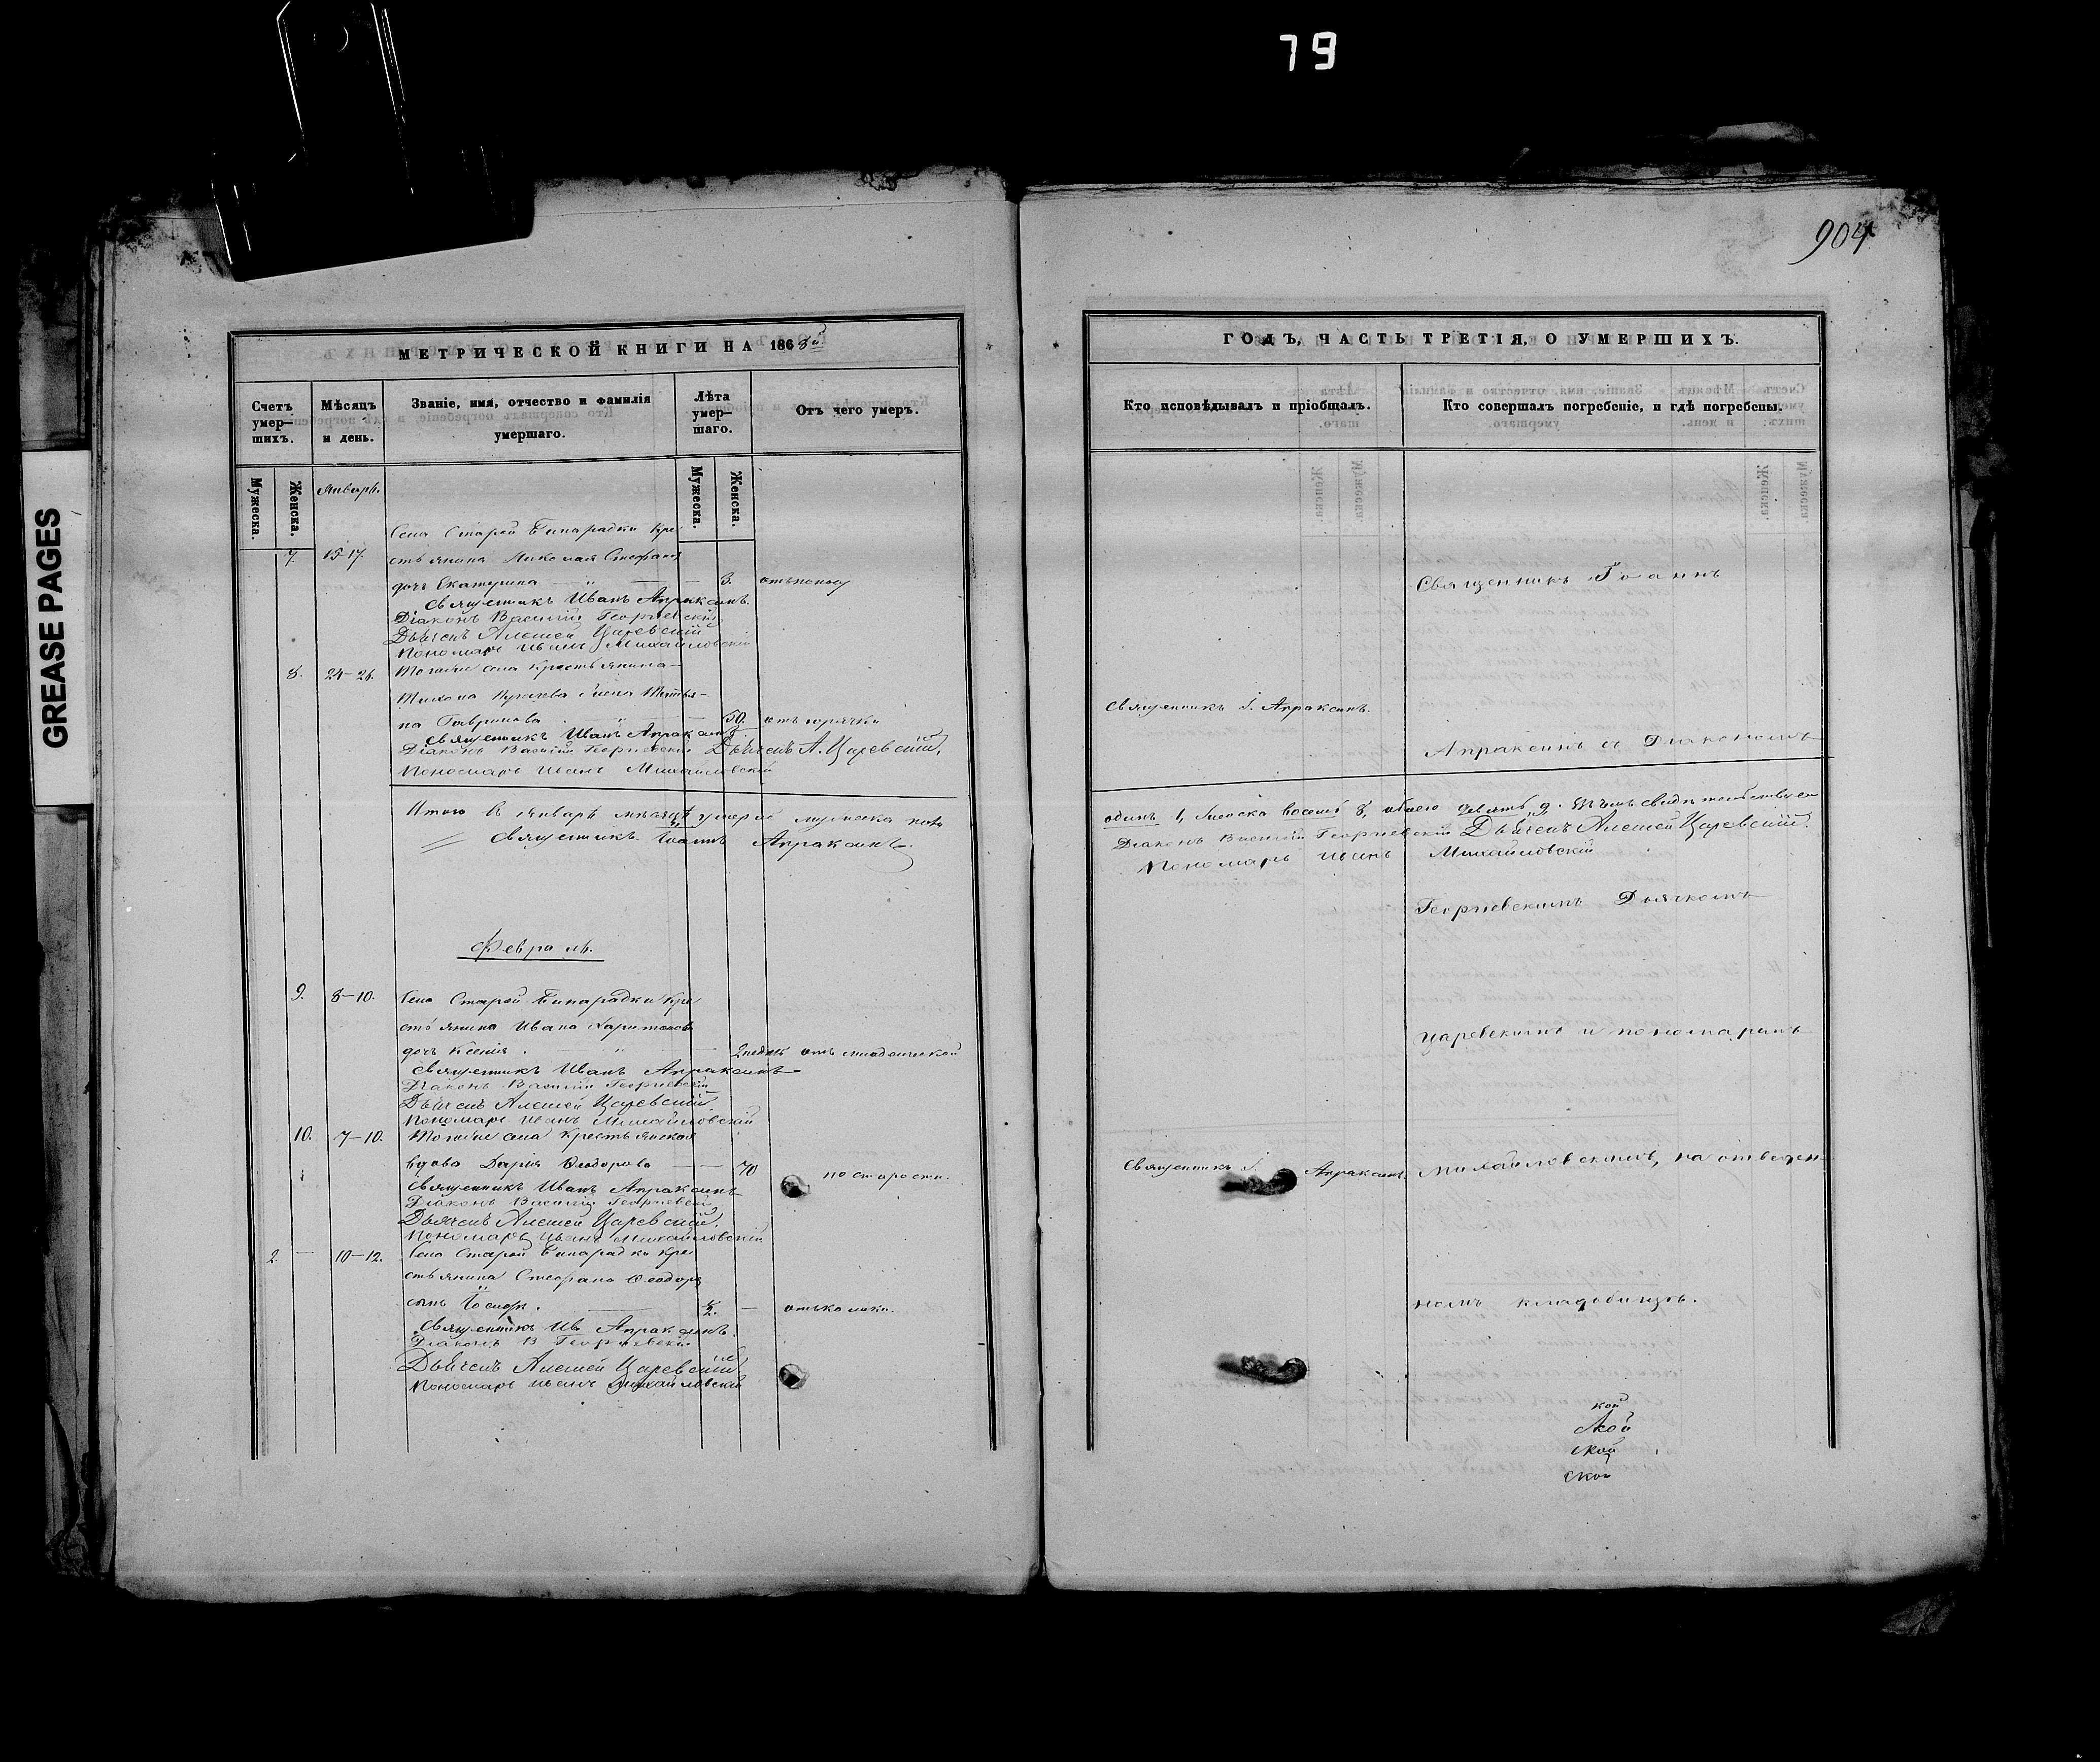 79
GREASE PAGES
904
МЕТРИЧЕСКОЙ КНИГИ НА 1868й
Счетъ умер-
шихъ.
Мѣсяцъ
и день.
Званіе, имя, отчество и фамилія
умершаго.
Лѣта
умер-
шаго.
Отъ чего умеръ.
Мужеска.
Женска.
Январь.
Мужеска.
Женска.
Села Старой Бинарадки кре
7. 15-17. стьянина Николая Стефанов
дочь Екатерина — " — — 3. отъ поносу
Священникъ Иванъ Апраксинъ.
Діаконъ Василій Георгіевскій
Дьячекъ Алексей Царевскій
Пономарь Иванъ Михайловскій
8. 24-26. Тогоже села крестьянина
жена Татья-
на Гаврилова — 50. отъ горячки
Священникъ Иванъ Апраксинъ
Діаконъ Василій Георгіевскій Дьячекъ А. Царевскій.
Пономарь Иванъ Михайловскій
Итого въ Январѣ мѣсяцѣ умерло мужеска пола
Священникъ Іоаннъ Апраксинъ.
Февраль.
9. 8-10. Села Старой Бинарадки кре
стьянина Ивана Харитонов
дочь Ксенія. — " — 2 недѣль отъ младенческой
Священникъ Иванъ Апраксинъ
Діаконъ Василій Георгіевскій
Дьячекъ Алексей Царевскій
Пономарь Иванъ Михайловскій
10. 7-10. Тогоже села крестьянская
вдова Дарія Ѳеодорова — — 70 по старости.
Священникъ Иванъ Апраксинъ
Діаконъ Василій Георгіевскій
Дьячекъ Алексей Царевскій.
Пономарь Иванъ Михайловскій
2. — 10-12. Села Старой Бинарадки кре
стьянина Стефана Ѳеодоров
сынъ Іосифъ. — ½. —
Священникъ Ив Апраксинъ.
Діаконъ В Георгіевскій
Дьячекъ Алексей Царевскій
Пономарь Иванъ Михайловскій
ГОДЪ, ЧАСТЬ ТРЕТІЯ, О УМЕРШИХЪ.
Кто исповѣдывалъ и пріобщалъ.
Кто совершалъ погребеніе, и гдѣ погребены.
Священникъ Іоаннъ
Священникъ І. Апраксинъ.
Апраксинъ съ Діакономъ
одинъ 1, женска восемь 8, обоего девять 9.
Діаконъ Василій Георгіевскій Дьячекъ Алексей Царевскій.
Пономарь Иванъ Михайловскій
Георгіевскимъ Дьячкомъ
Царевскимъ и пономаремъ
Священникъ І. Апраксинъ. Михайловскимъ, на отведен
номъ кладбищѣ.
кой
ской
ской
ской